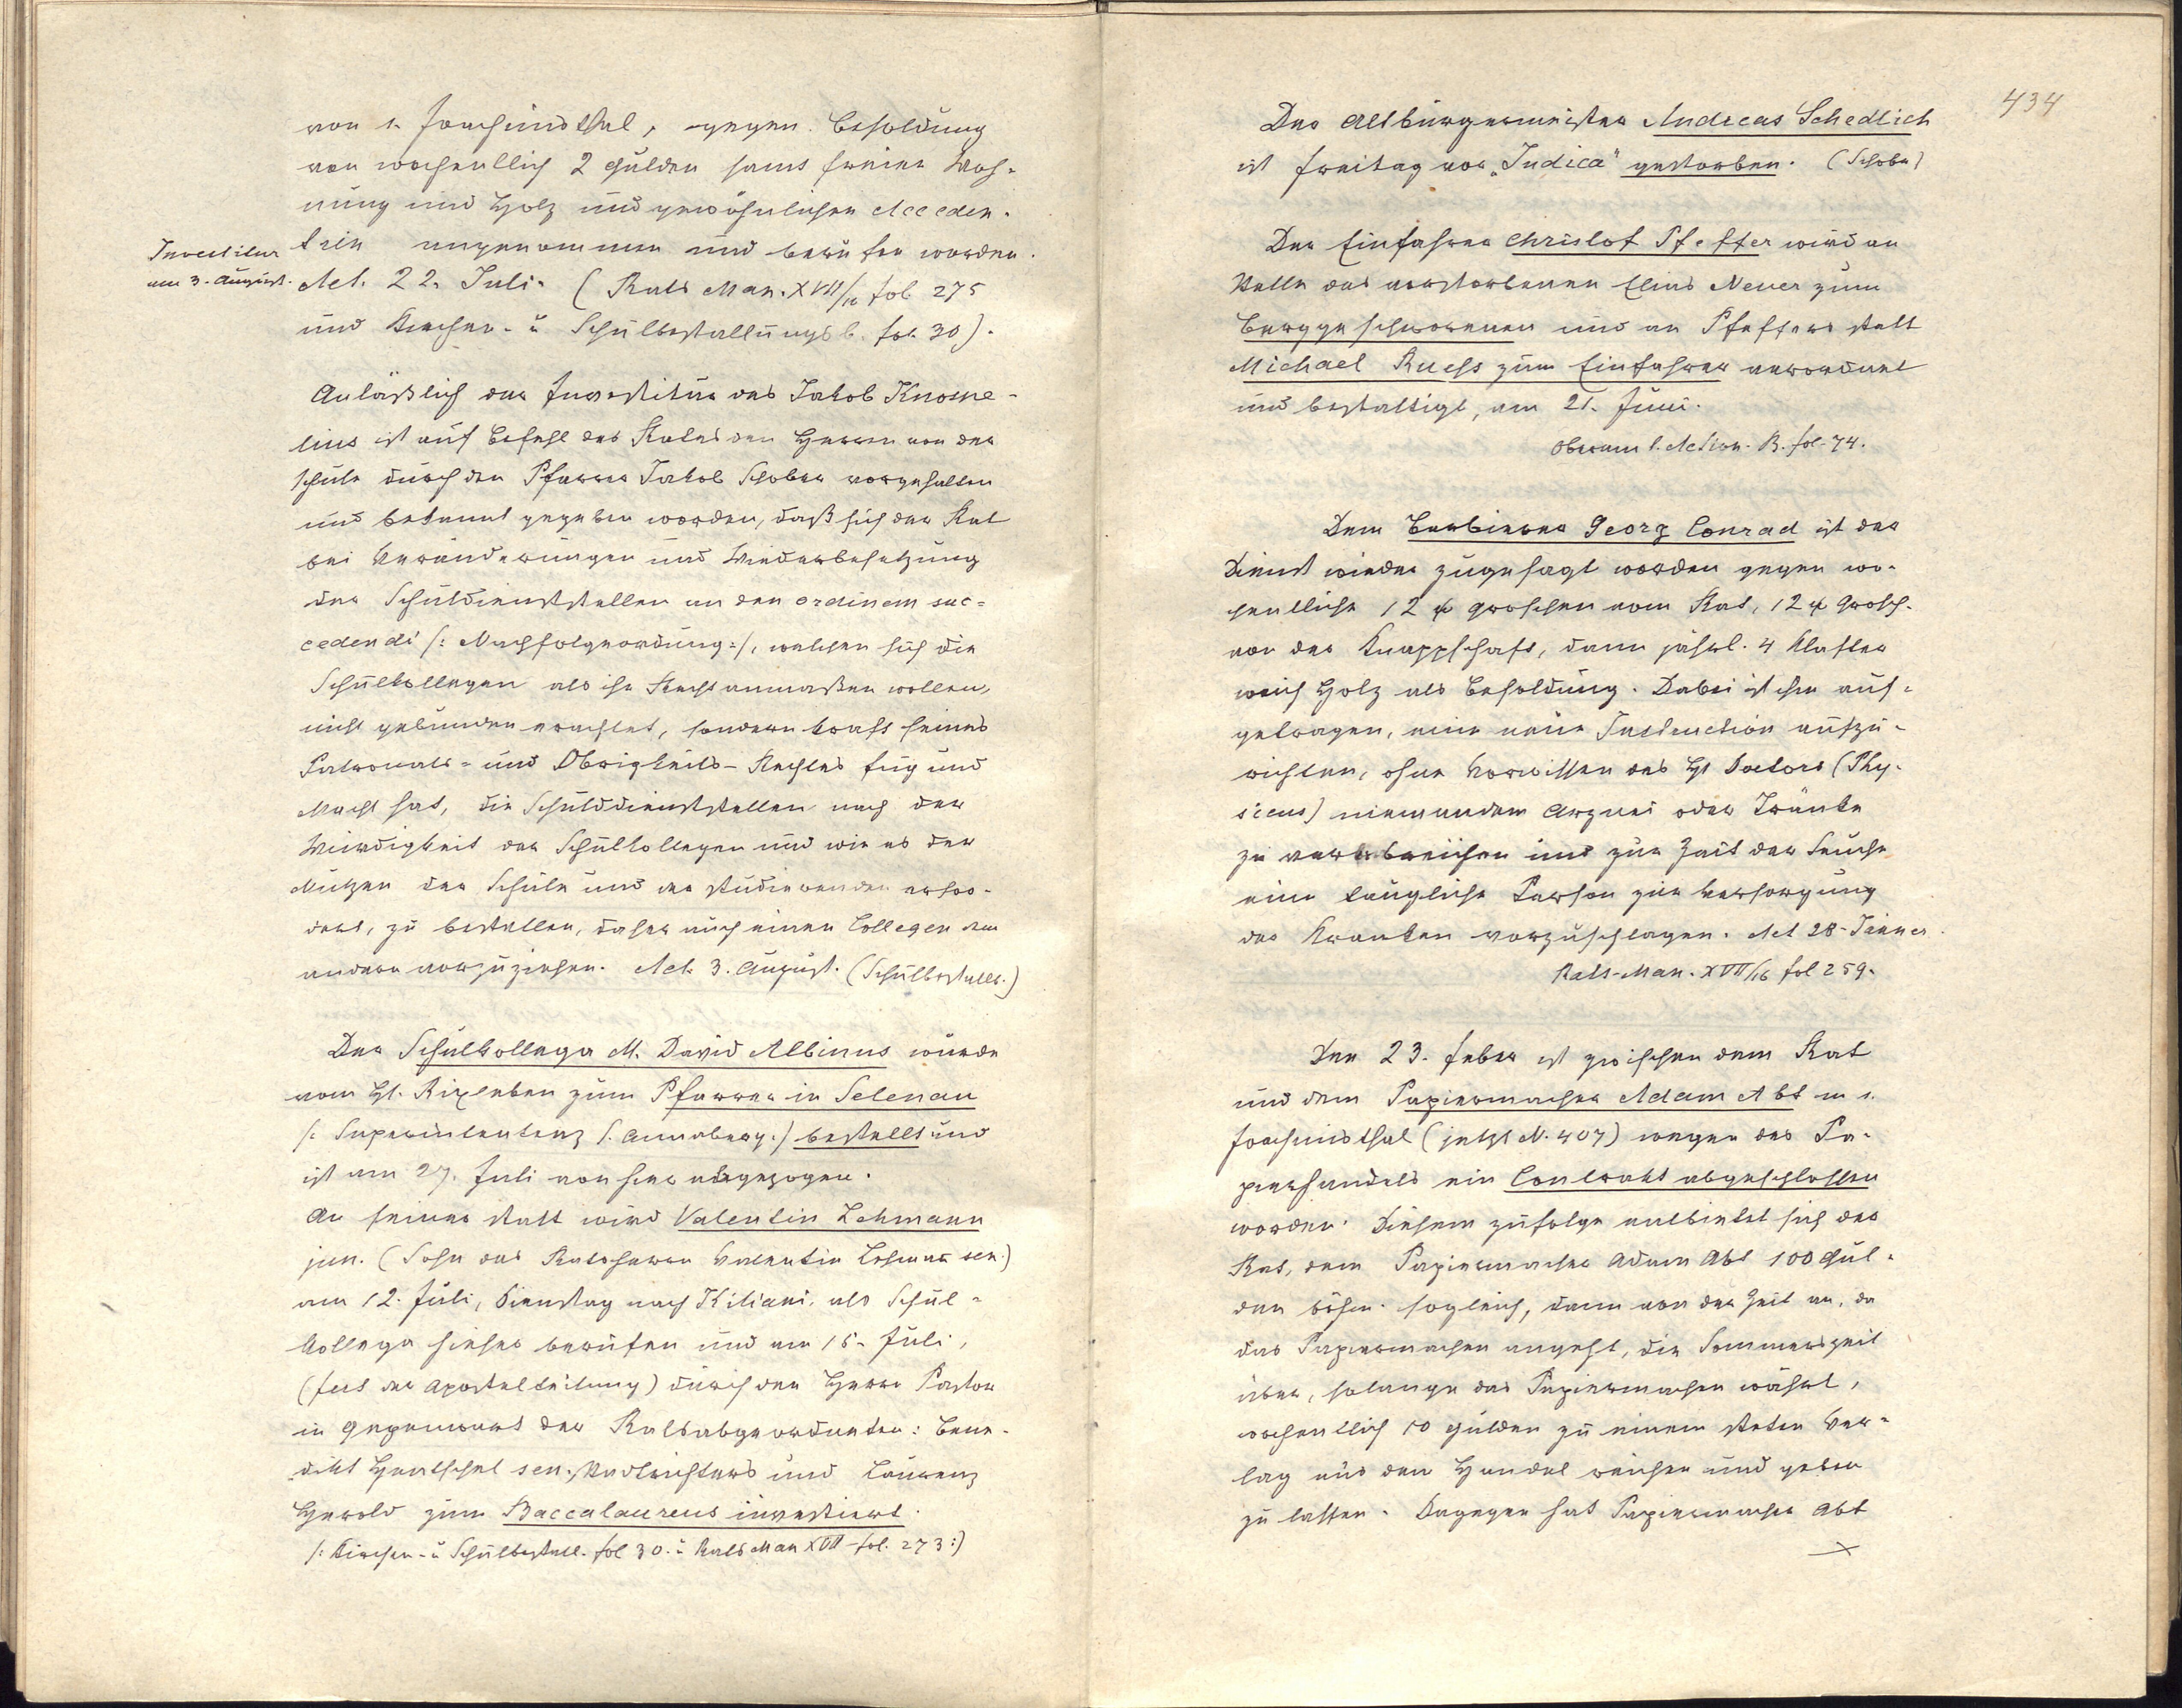 von S. Joachimsthal, gegen Besoldung
von wochentlich 2 Gulden samt freier Woh-
nung und Holz und gewöhnlichen Acceden-
tien angenommen und berufen worden.
Investitur
am 3. August.
Act. 22. Juli. (Rats Man. XVII/16 fol 275
und Kirchen- u Schulbestallungsb. fol. 30).
Anläßlich der Investitur des Jakob Knome-
lius ist auf Befehl des Rates den Herren von der
Schule durch den Pfarrer Jakob Schober vorgehalten
und bekannt gegeben worden, daß sich der Rat
bei Veränderungen und Wiederbesetzung
der Schuldienststellen an den ordinem suc-
cedendi /: Nachfolgeordnung :/, welchen sich die
Schulkollegen als ihr Recht anmaßen wollen,
nicht gebunden erachtet, sondern kraft seines
Patronats- und Obrigkeits-Rechtes fug und
Macht hat, die Schulddienststellen nach der
Würdigkeit der Schulkollegen und wie es der
Nutzen der Schule und der studierenden erfor-
dert, zu bestellen, daher auch einen Collegen dem
andern vorzuziehen. Act. 3. August. (Schulbestall.)
Der Schulkollega M. David Albinus wurde
vom H. Rixleben zum Pfarrer in Selenau
/: Superintentenz S. Annaberg :/ bestellt und
ist am 27. Juli von hier abgezogen.
An seiner statt wird Valentin Lehmann
jun. (Sohn des Ratsherrn Valentin Lehman sen.)
am 12. Juli, Dienstag nach Kiliani, als Schul-
kollega hieher berufen und am 15. Juli,
(fest der Apostelteilung) durch den Herrn Pastor
in Gegenwart der Ratsabgeordneten: Bene-
dikt Hentschel sen. Stadtrichters und Laurenz
Herold zum Baccalaureus investiert.
/: Kirchen- u Schulbestall. fol 30. u Rats Man XVII fol. 273 :)
434
Der Altbürgermeister Andreas Schedlich
ist freitag vor „Judica" gestorben. (Schober)
Der Einfahrer Christof Pfeffer wird an
Stelle des verstorbenen Elias Neuer zum
Berggeschworenen und an Pfeffers statt
Michael Ruchs zum Einfahrer verordnet
und bestattigt, am 21. Juni.
Oberamt. Action. B. fol. 74.
Dem Barbierer Georg Conrad ist der
Dienst wieder zugesagt worden gegen wo-
chentliche 12 groschen vom Rat, 12 Grosch.
von der Knappschaft, dann jährl. 4 Klafter
weich Holz als Besoldung. Dabei ist ihm auf-
getragen, eine neue Instruction aufzu-
richten, ohne Vorwissen des H Doctors (Phy-
sicus) niemandem Arznei oder Tränke
zu verabreichen und zur Zeit der Seuche
eine taugliche Person zur Versorgung
der Kranken vorzuschlagen. Act 28. Jänner.
Rats-Man. XVII/16 fol 259.
Den 23. Feber ist zwischen dem Rat
und dem Papiermacher Adam Abt in S.
Joachimsthal (jetzt N. 407) wegen des Pa-
pierhandels ein Contrakt abgeschlossen
worden. Diesem zufolge entbietet sich der
Rat, dem Papiermacher Adam Abt 100 Gul-
den böhm. sogleich, dann von der Zeit an, da
das Papiermachen angeht, die Sommerszeit
über, solange das Papiermachen währt,
wochentlich 10 Gulden zu einem steten Ver-
lag auf den Handel reichen und geben
zu lassen. Dagegen hat Papiermacher Abt